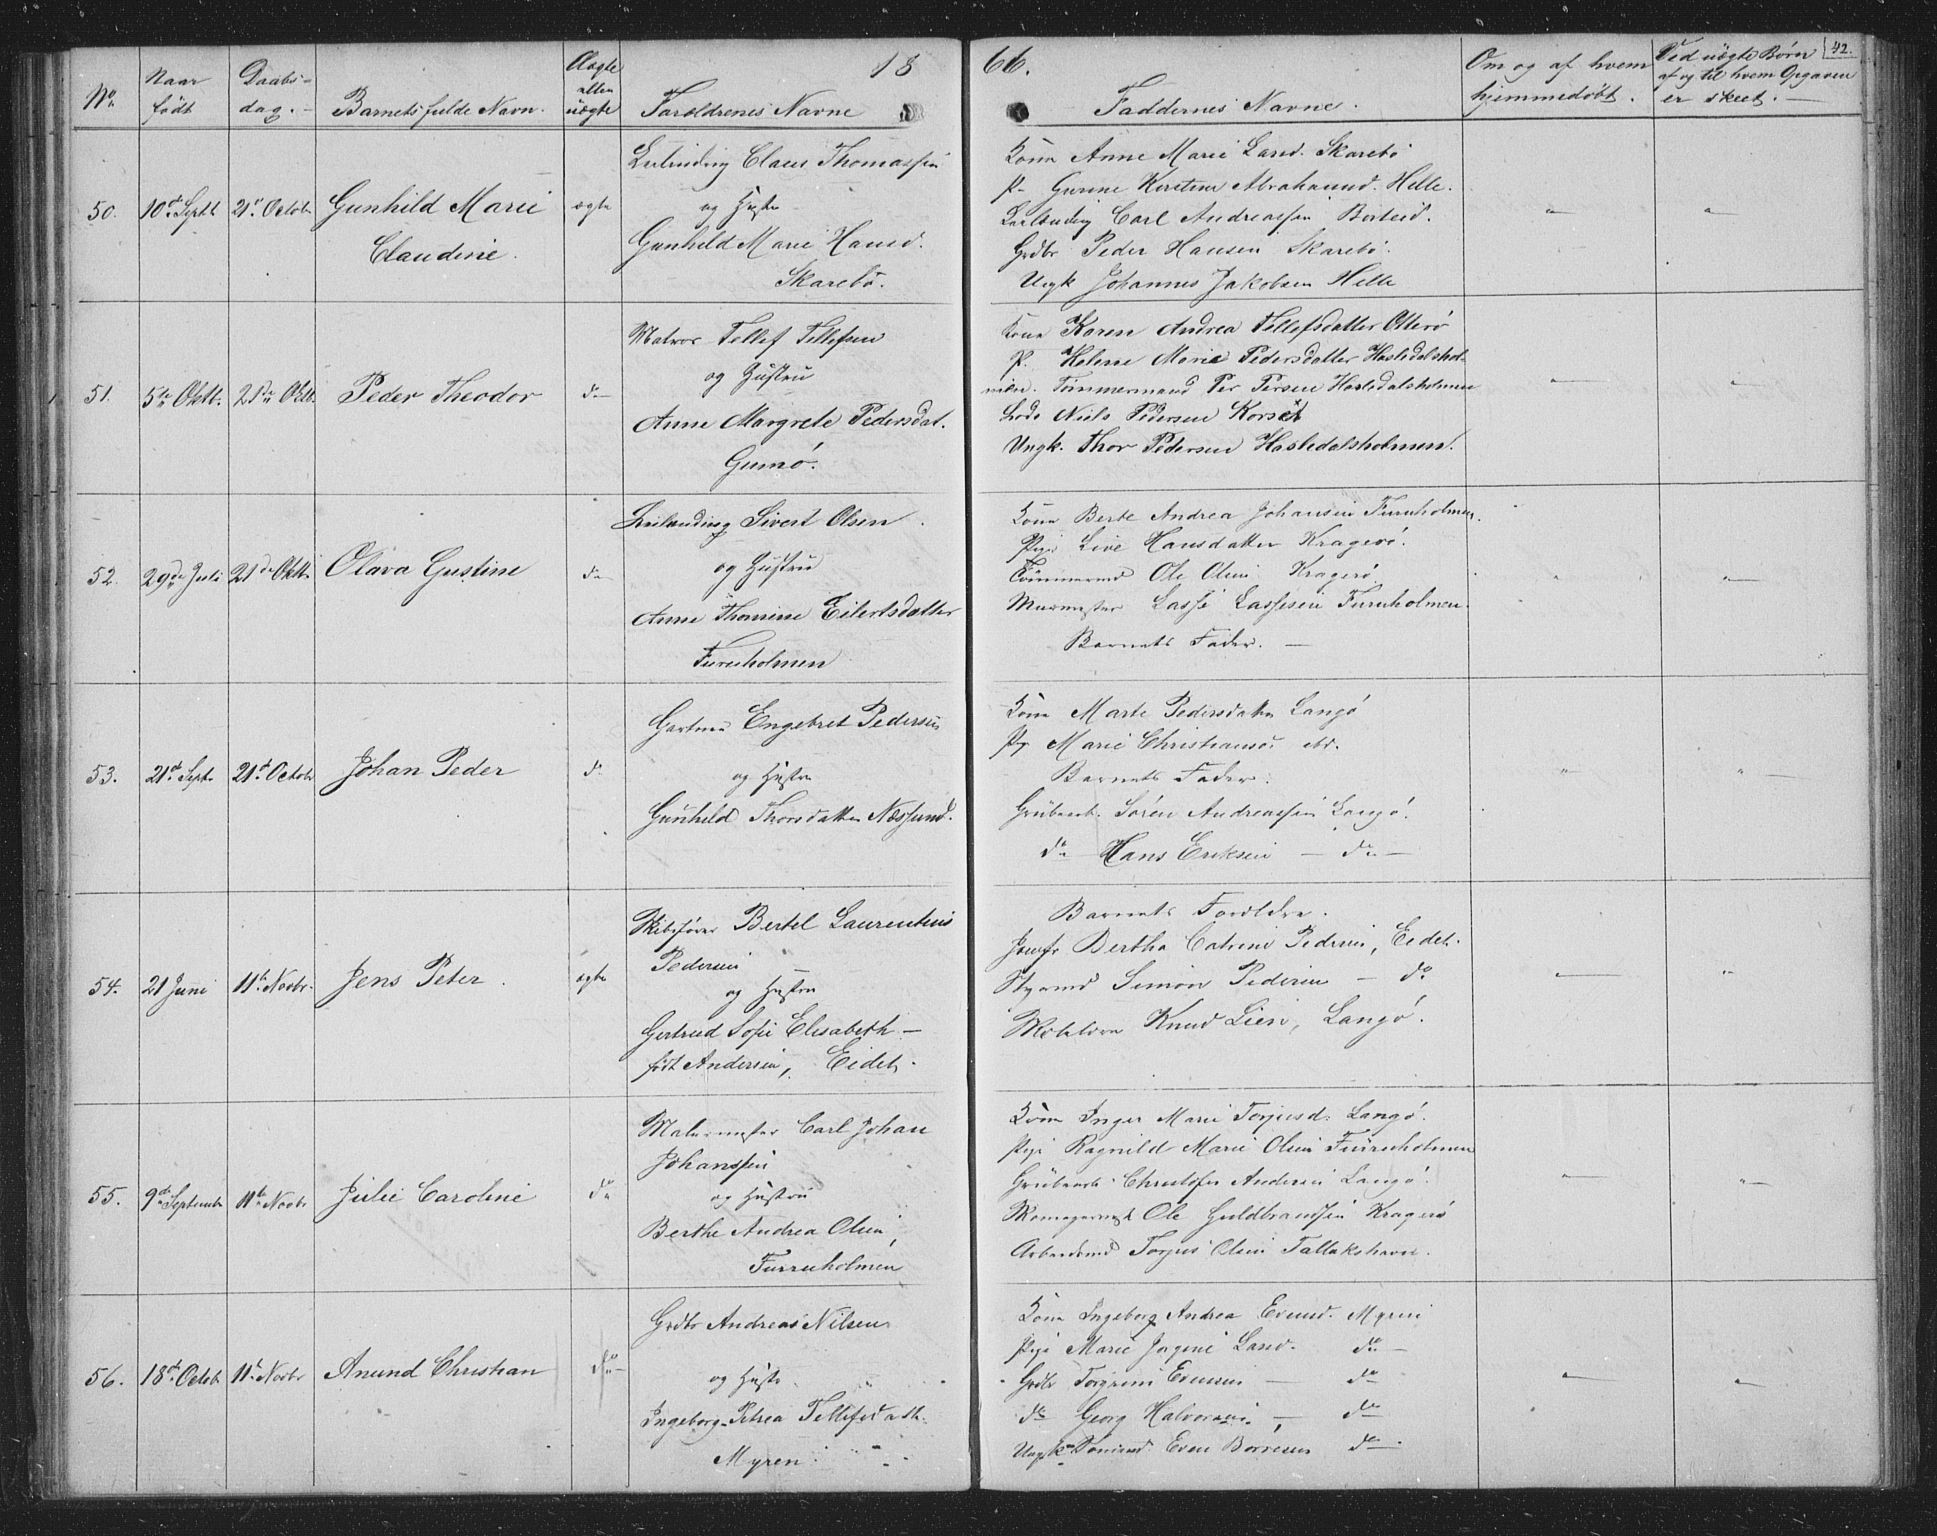 18 66.
42.
No. Naar født Daabsdag. Barnets fulde Navn. Ægte eller uægte Forældrenes Navne
Faddernes Navne. Om og af hvem hjemmedøbt. Ved uægte Børn af og til hvem Opgaven er skeet.
50. 10de Septb 21de Octob Gunhild Marie Claudine. ægte
Leilænding Claus Thomassen
og Hustr
Gunhild Marie Hansd.
Skarebø.
Kone Anne Marie Larsd. Skarebø
P. Gurine Kirstine Abrahamsd. Helle.
Leilænding Carl Andreassen Borteid.
Grdbr Peder Hansen Skarebø.
Ungk Johannes Jakobsen Helle
51. 5te Oktb. 21de Oktb. Peder Theodor do
Matros Tellef Tellefsen
og Hustru
Anne Margrete Pedersdat.
Gumø.
Kone Karen Andrea Tellefsdatter Otterø
P. Helene Marie Pedersdatter Hasledalshol-
men. Tømmermand Per Persen Hasledalsholmen
Lods Niels Pedersen Korset
Ungk. Thor Pedersen Hasledalsholmen.
52. 29de Juli 21de Oktb Olava Gustine do
Leilænding Sivert Olsen
og Hustru
Anne Thomine Eilertsdatter
Furuholmen
Kone Berte Andrea Johansen Furuholmen.
Pige Live Hansdatter Kragerø.
Tømmermd Ole Olsen Kragerø
Murmester Lasse Lassesen Furuholmen.
Barnets Fader.
53. 21de Sept. 21de Octobr Johan Peder do
Gartner Engebret Pedersen
og Hustru
Gunhild Thorsdatter Næssund.
Kone Marte Pedersdatter Langø
Pg Marie Christians. do.
Barnets Fader.
Grubearb. Søren Andreassen Langø.
do Hans Eriksen do
54. 21 Juni 11te Novbr. Jens Peter. ægte
Skibsfører Bertel Laurentius
Pedersen
og Hustru
Gertrud Sofie Elisabeth
født Andersen, Eidet.
Barnets Forældre.
Jomfr Bertha Catrine Pedersen, Eidet.
Styrmd Simon Pedersen do
Knud Lien, Langø.
55. 9de Septembr 11te Novbr Julie Caroline do
Malermester Carl Johan
Johanssen
og Hustru
Berthe Andrea Olsen,
Furruholmen
Kone Inger Marie Torjusd. Langø.
Pige Ragnild Marie Olsen Furruholmen
Grubearb. Christofer Andersen Langø.
Skomagermest Ole Guldbrandsen Kragerø
Arbeidsmd Torjus Olsen Tallakshavn.
56. 18de Octob 11te Novbr Anund Christian do
Grdbr Andreas Nilsen
og Hustr
Ingeborg Petrea Tellefsdattr.
Myren.
Kone Ingeborg Andrea Evensd. Myren
Pige Marie Jorgine Larsd. do
Grdbr Torgrim Evensen do
do Georg Halvorsen, do
Ungk. Even Børresen do